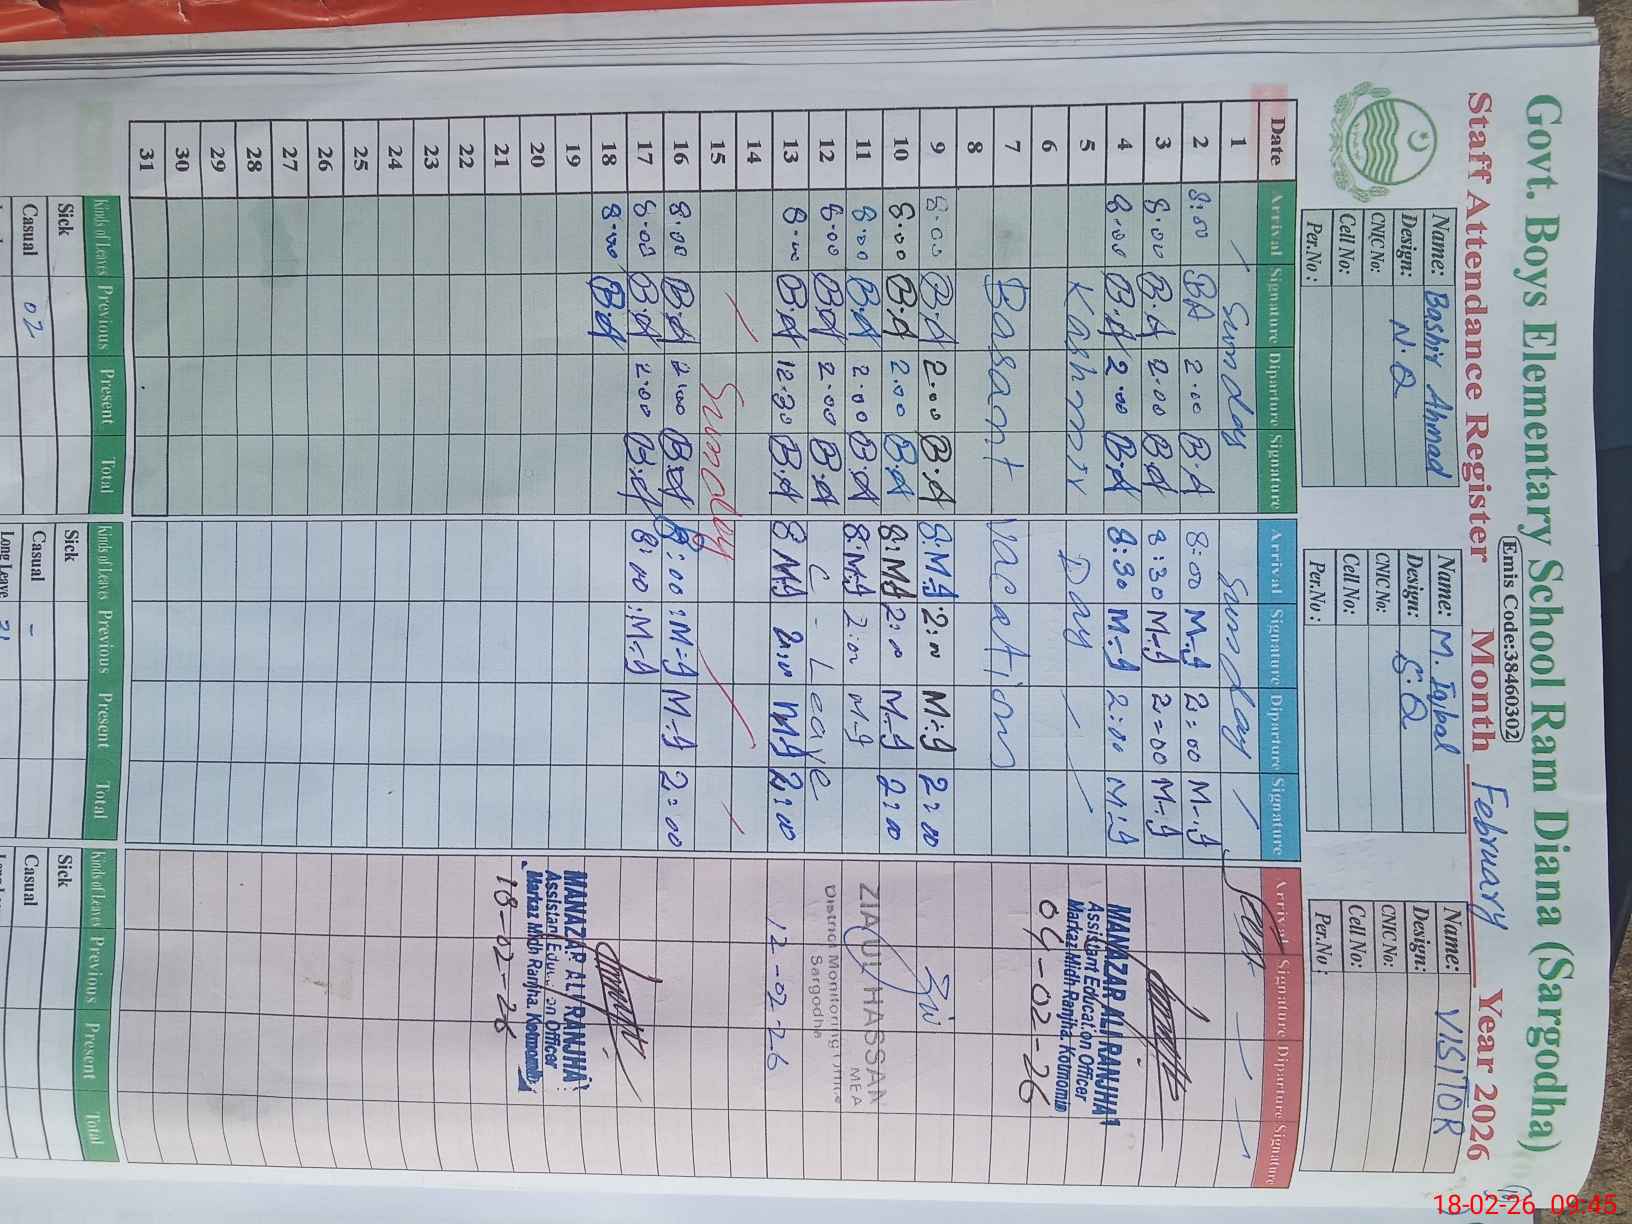 Govt. Boys Elementary School Ram Diana (Sargodha)
Emis Code:38460302
Staff Attendance Register Month February Year 2026
Name: Bashir Ahmad
Design: N.Q
CNIC No:
Cell No:
Per.No:
Name: M. Iqbal
Design: S.Q
CNIC No:
Cell No:
Per.No:
Name: VISITOR
Design:
CNIC No:
Cell No:
Per.No:
Date Arrival Signature Diparture Signature Arrival Signature Diparture Signature Arrival Signature Diparture Signature
1 Sunday Sunday
2 8:00 BA 2.00 B.A 8:00 M.I 2:00 M.I
3 8.00 B.A 2.00 B.A 8:30 M.I 2:00 M.I
4 8.00 B.A 2.00 B.A 8:30 M.I 2:00 M.I
MANAZAR ALI RANJHA
Assistant Education Officer
Markaz Midh Ranjha. Kotmomin
04-02-26
5 Kashmir Day
6
7 Basant Vacation
8
9 8.00 B.A 2.00 B.A 8:M.I 2:00 M.I 2:00
10 8.00 B.A 2.00 B.A 8:M.I 2:00 M.I 2:00
11 8.00 B.A 2.00 B.A 8:M.I 2:00 M.I
12 8.00 B.A 2.00 B.A C-Leave
ZIA UL HASSAN
MEA
District Monitoring Office
Sargodha
12-02-26
13 8.00 B.A 12.30 B.A 8 M.I 2:00 M.I 2:00
14
15 Sunday
16 8.00 B.A 2.00 B.A 8:00 M.I M.I 2:00
17 8.00 B.A 2.00 B.A 8:00 M.I
18 8.00 B.A
MANAZAR ALI RANJHA
Assistant Education Officer
Markaz Midh Ranjha. Kotmomin
18-02-26
19
20
21
22
23
24
25
26
27
28
29
30
31
Kinds of Leaves Previous Present Total Kinds of Leaves Previous Present Total Kinds of Leaves Previous Present Total
Sick Sick Sick
Casual 02 Casual - Casual
Long Leave
18-02-26 09:45